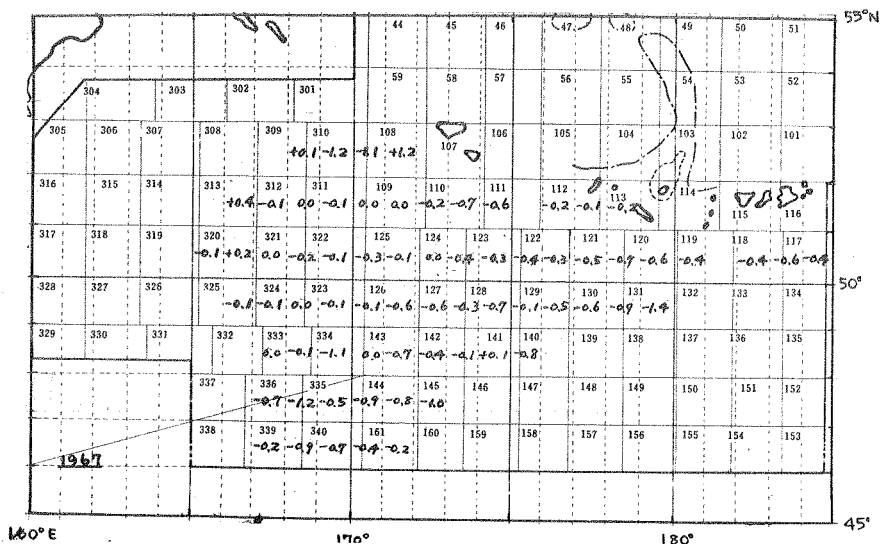 44 45 46 47 48 49 50 51 55°N
59 58 57 56 55 54 53 52
304 303 302 301
305 306 307 308 309 310 108 107 106 105 104 103 102 101
+0.1 -1.2 -1.1 +1.2
316 315 314 313 312 311 109 110 111 112 113 114 115 116
+0.4 -0.1 0.0 -0.1 0.0 0.0 -0.2 -0.7 -0.6 -0.2 -0.1 -0.2
317 318 319 320 321 322 125 124 123 122 121 120 119 118 117
-0.1 +0.2 0.0 -0.2 -0.1 -0.3 -0.1 0.0 -0.4 -0.3 -0.4 -0.3 -0.5 -0.9 -0.6 -0.4 -0.4 -0.6 -0.4
328 327 326 325 324 323 126 127 128 129 130 131 132 133 134 50°
-0.1 -0.1 0.0 -0.1 -0.1 -0.6 -0.6 -0.3 -0.7 -0.1 -0.5 -0.6 -0.9 -1.4
329 330 331 332 333 334 143 142 141 140 139 138 137 136 135
0.0 -0.1 -1.1 0.0 -0.7 -0.4 -0.1 +0.1 -0.8
337 336 335 144 145 146 147 148 149 150 151 152
-0.7 -1.2 -0.5 -0.9 -0.8 -1.0
338 339 340 161 160 159 158 157 156 155 154 153
-0.2 -0.9 -0.7 -0.4 -0.2
1967
45°
160°E 170° 180°